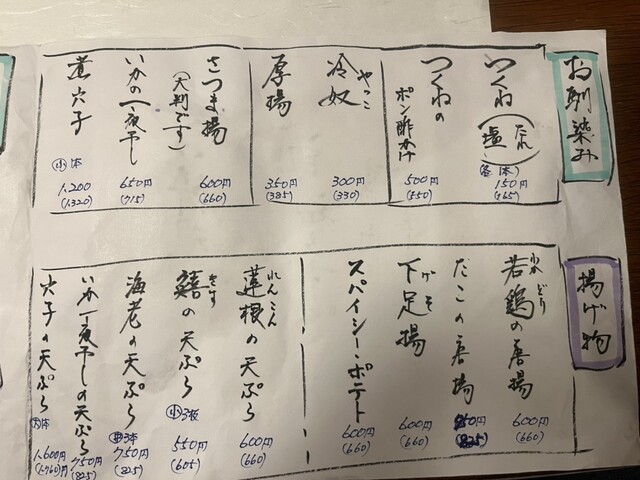 お馴染み
つくね(たれ 塩)
(各1本) 150円
(165)
つくねの
ポン酢かけ
500円
(550)
やっこ
冷奴
300円
(330)
厚揚
350円
(385)
さつま揚
(大判です)
600円
(660)
いかの一夜干し
650円
(715)
煮穴子
小1本
1.200
(1.320)
揚げ物
わか どり
若鶏の唐揚
600円
(660)
たこの唐揚
(825)
げそ
下足揚
600円
(660)
スパイシーポテト
600円
(660)
れんこん
蓮根の天ぷら
600円
(660)
きす
鱚の天ぷら
小3枚
550円
(605)
海老の天ぷら
中3本
750円
(825)
いか一夜干しの天ぷら
750円
(825)
穴子の天ぷら
大1本
1.600円
(1.760)円